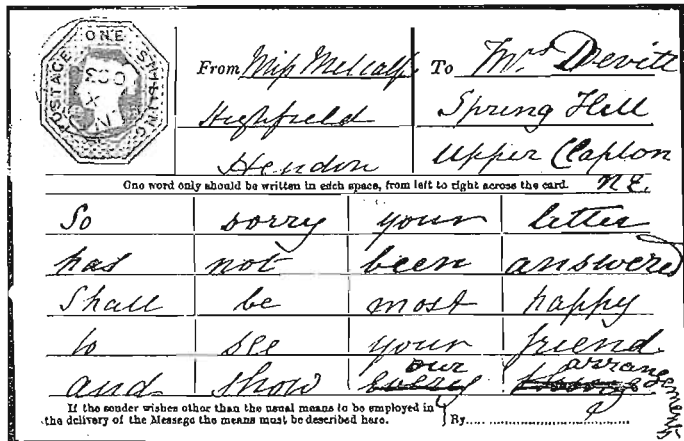 POSTAGE ONE SHILLING
From Miss Metcalfe To Mrs Devitt
Highfield Spring Hill
Hendon Upper Clapton
N.E.
One word only should be written in each space, from left to right across the card.
So sorry your letter
has not been answered
Shall be most happy
to see your friend
and show our arrangements
If the sender wishes other than the usual means to be employed in
the delivery of the Message the means must be described here. } By